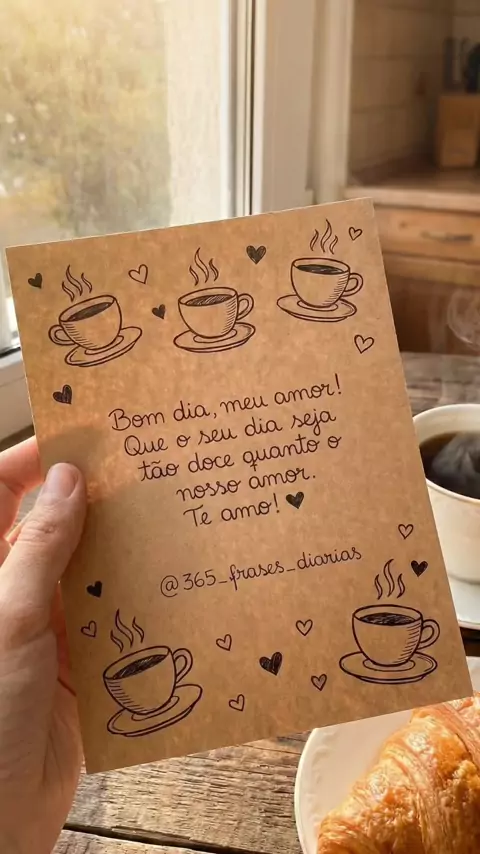 Bom dia, meu amor!
Que o seu dia seja
tão doce quanto o
nosso amor.
Te amo! ♥
@365_frases_diarias